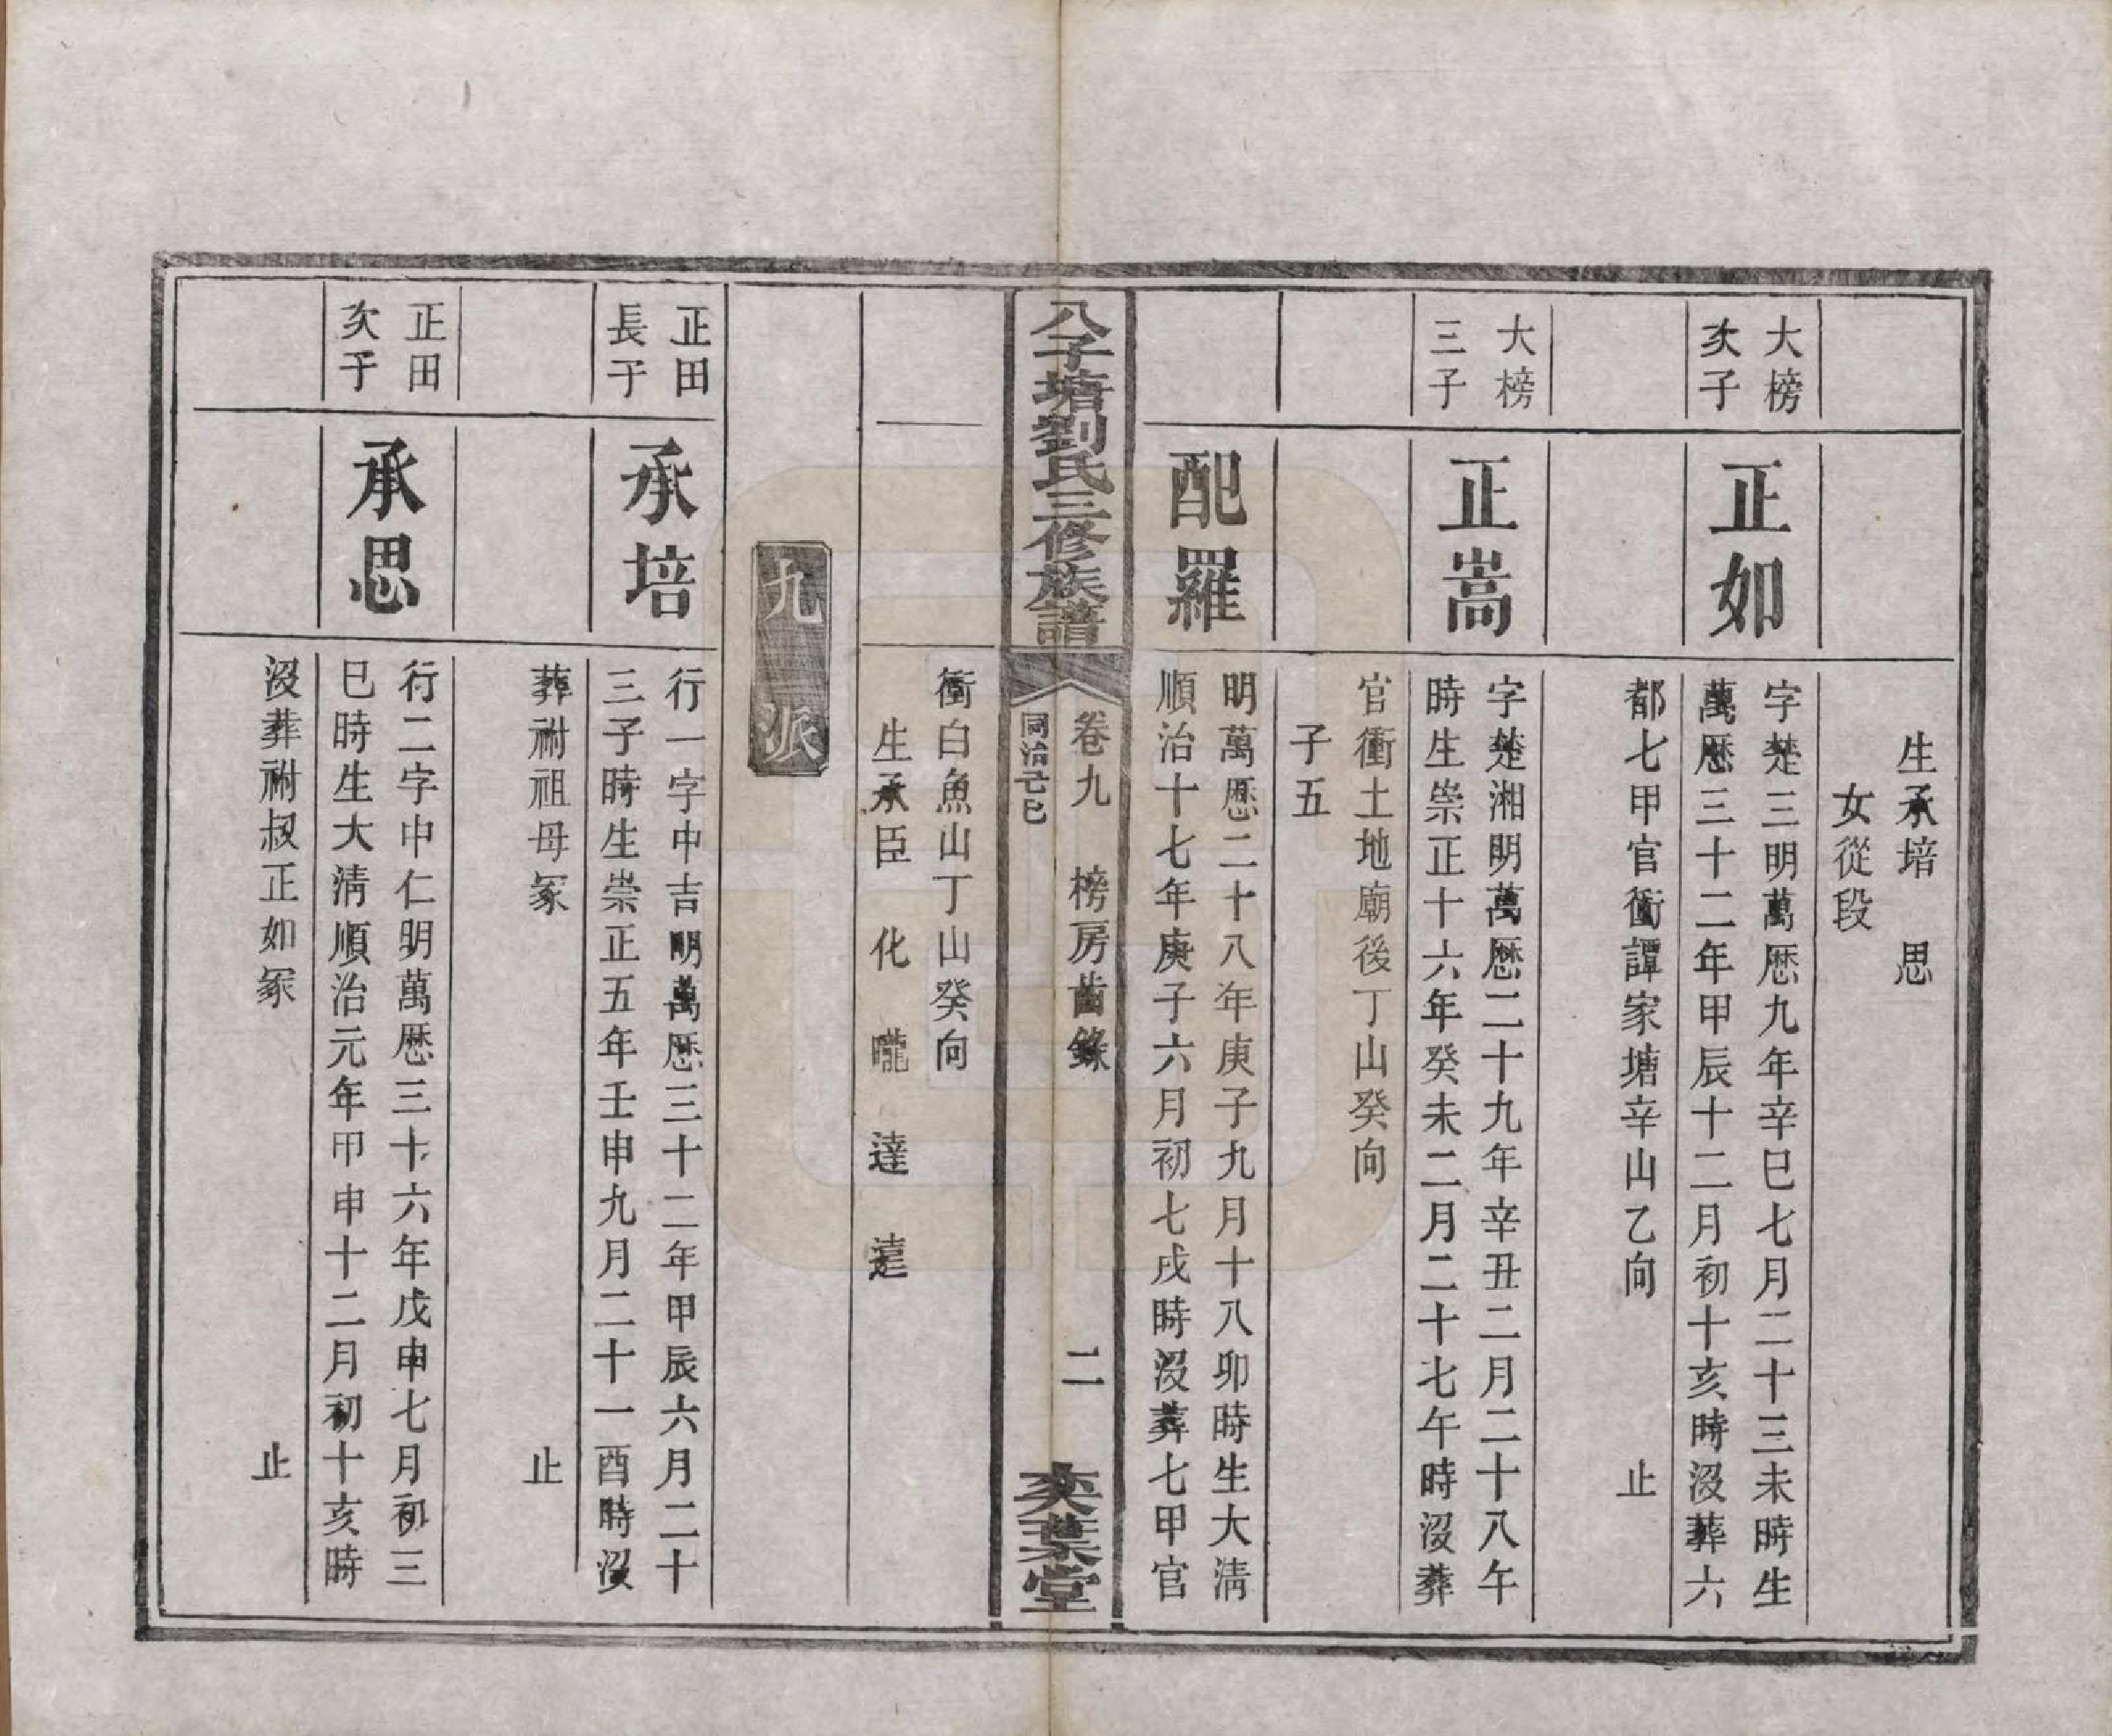 生承培　思
女從段
大榜
次子
正如
字楚三明萬歷九年辛巳七月二十三未時生
萬歷三十二年甲辰十二月初十亥時沒葬六
都七甲官衝譚家塘辛山乙向　止
大榜
三子
正嵩
字楚湘明萬歷二十九年辛丑二月二十八午
時生崇正十六年癸未二月二十七午時沒葬
官衝土地廟後丁山癸向
子五
配羅
明萬歷二十八年庚子九月十八卯時生大淸
順治十七年庚子六月初七戌時沒葬七甲官
八子塘劉氏三修族譜
卷九　榜房齒錄　二
同治己巳
奕葉堂
衝白魚山丁山癸向
生承臣　化　曨　達　遠
九派
正田
長子
承培
行一字中吉明萬歷三十二年甲辰六月二十
三子時生崇正五年壬申九月二十一酉時沒
葬祔祖母冢　止
正田
次子
承思
行二字中仁明萬歷三十六年戊申七月初三
巳時生大淸順治元年甲申十二月初十亥時
沒葬祔叔正如冢　止